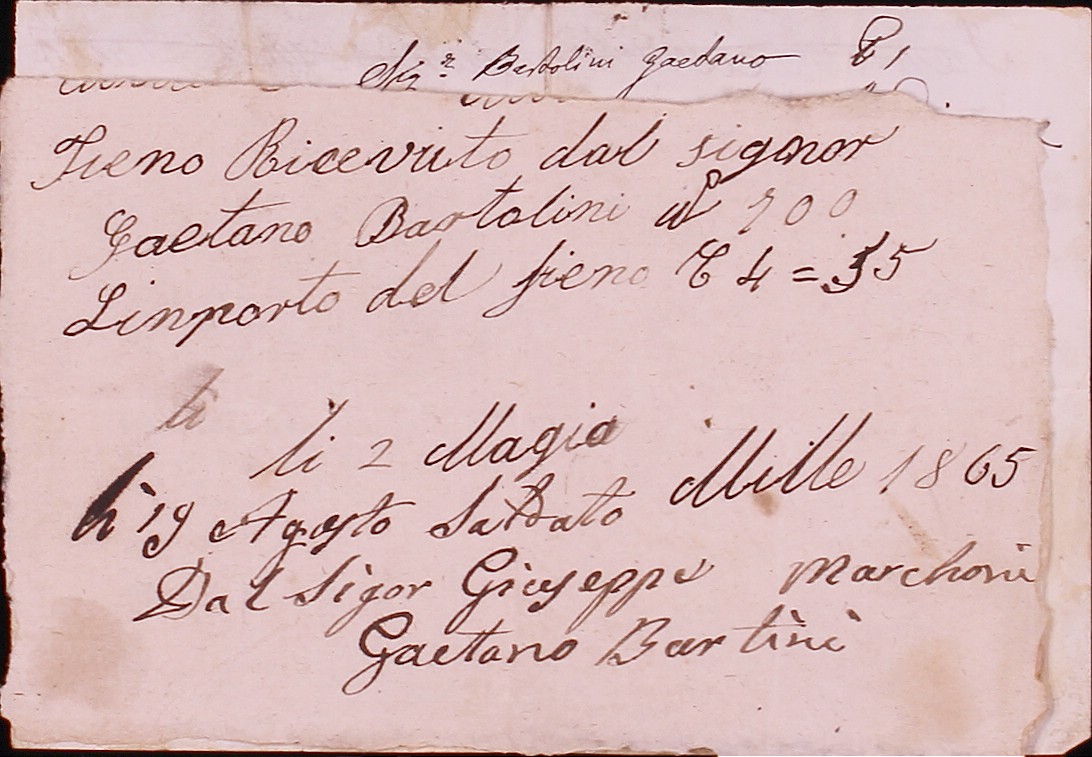 Sigr Bartolini Gaetano
Fieno Ricevuto dal signor
Gaetano Bartolini 700
Linporto del fieno 4 = 35
li
li 2 Magio Mille 1865
li 19 Agosto Saldato
Dal Sigor Giuseppe Marchoni
Gaetano Bartini